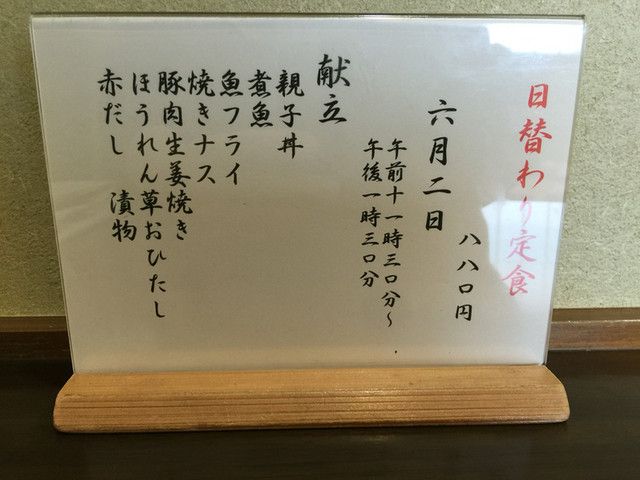 日替わり定食
八八〇円
六月二日
午前十一時三〇分～
午後一時三〇分
献立
親子丼
煮魚
魚フライ
焼きナス
豚肉生姜焼き
ほうれん草おひたし
赤だし 漬物